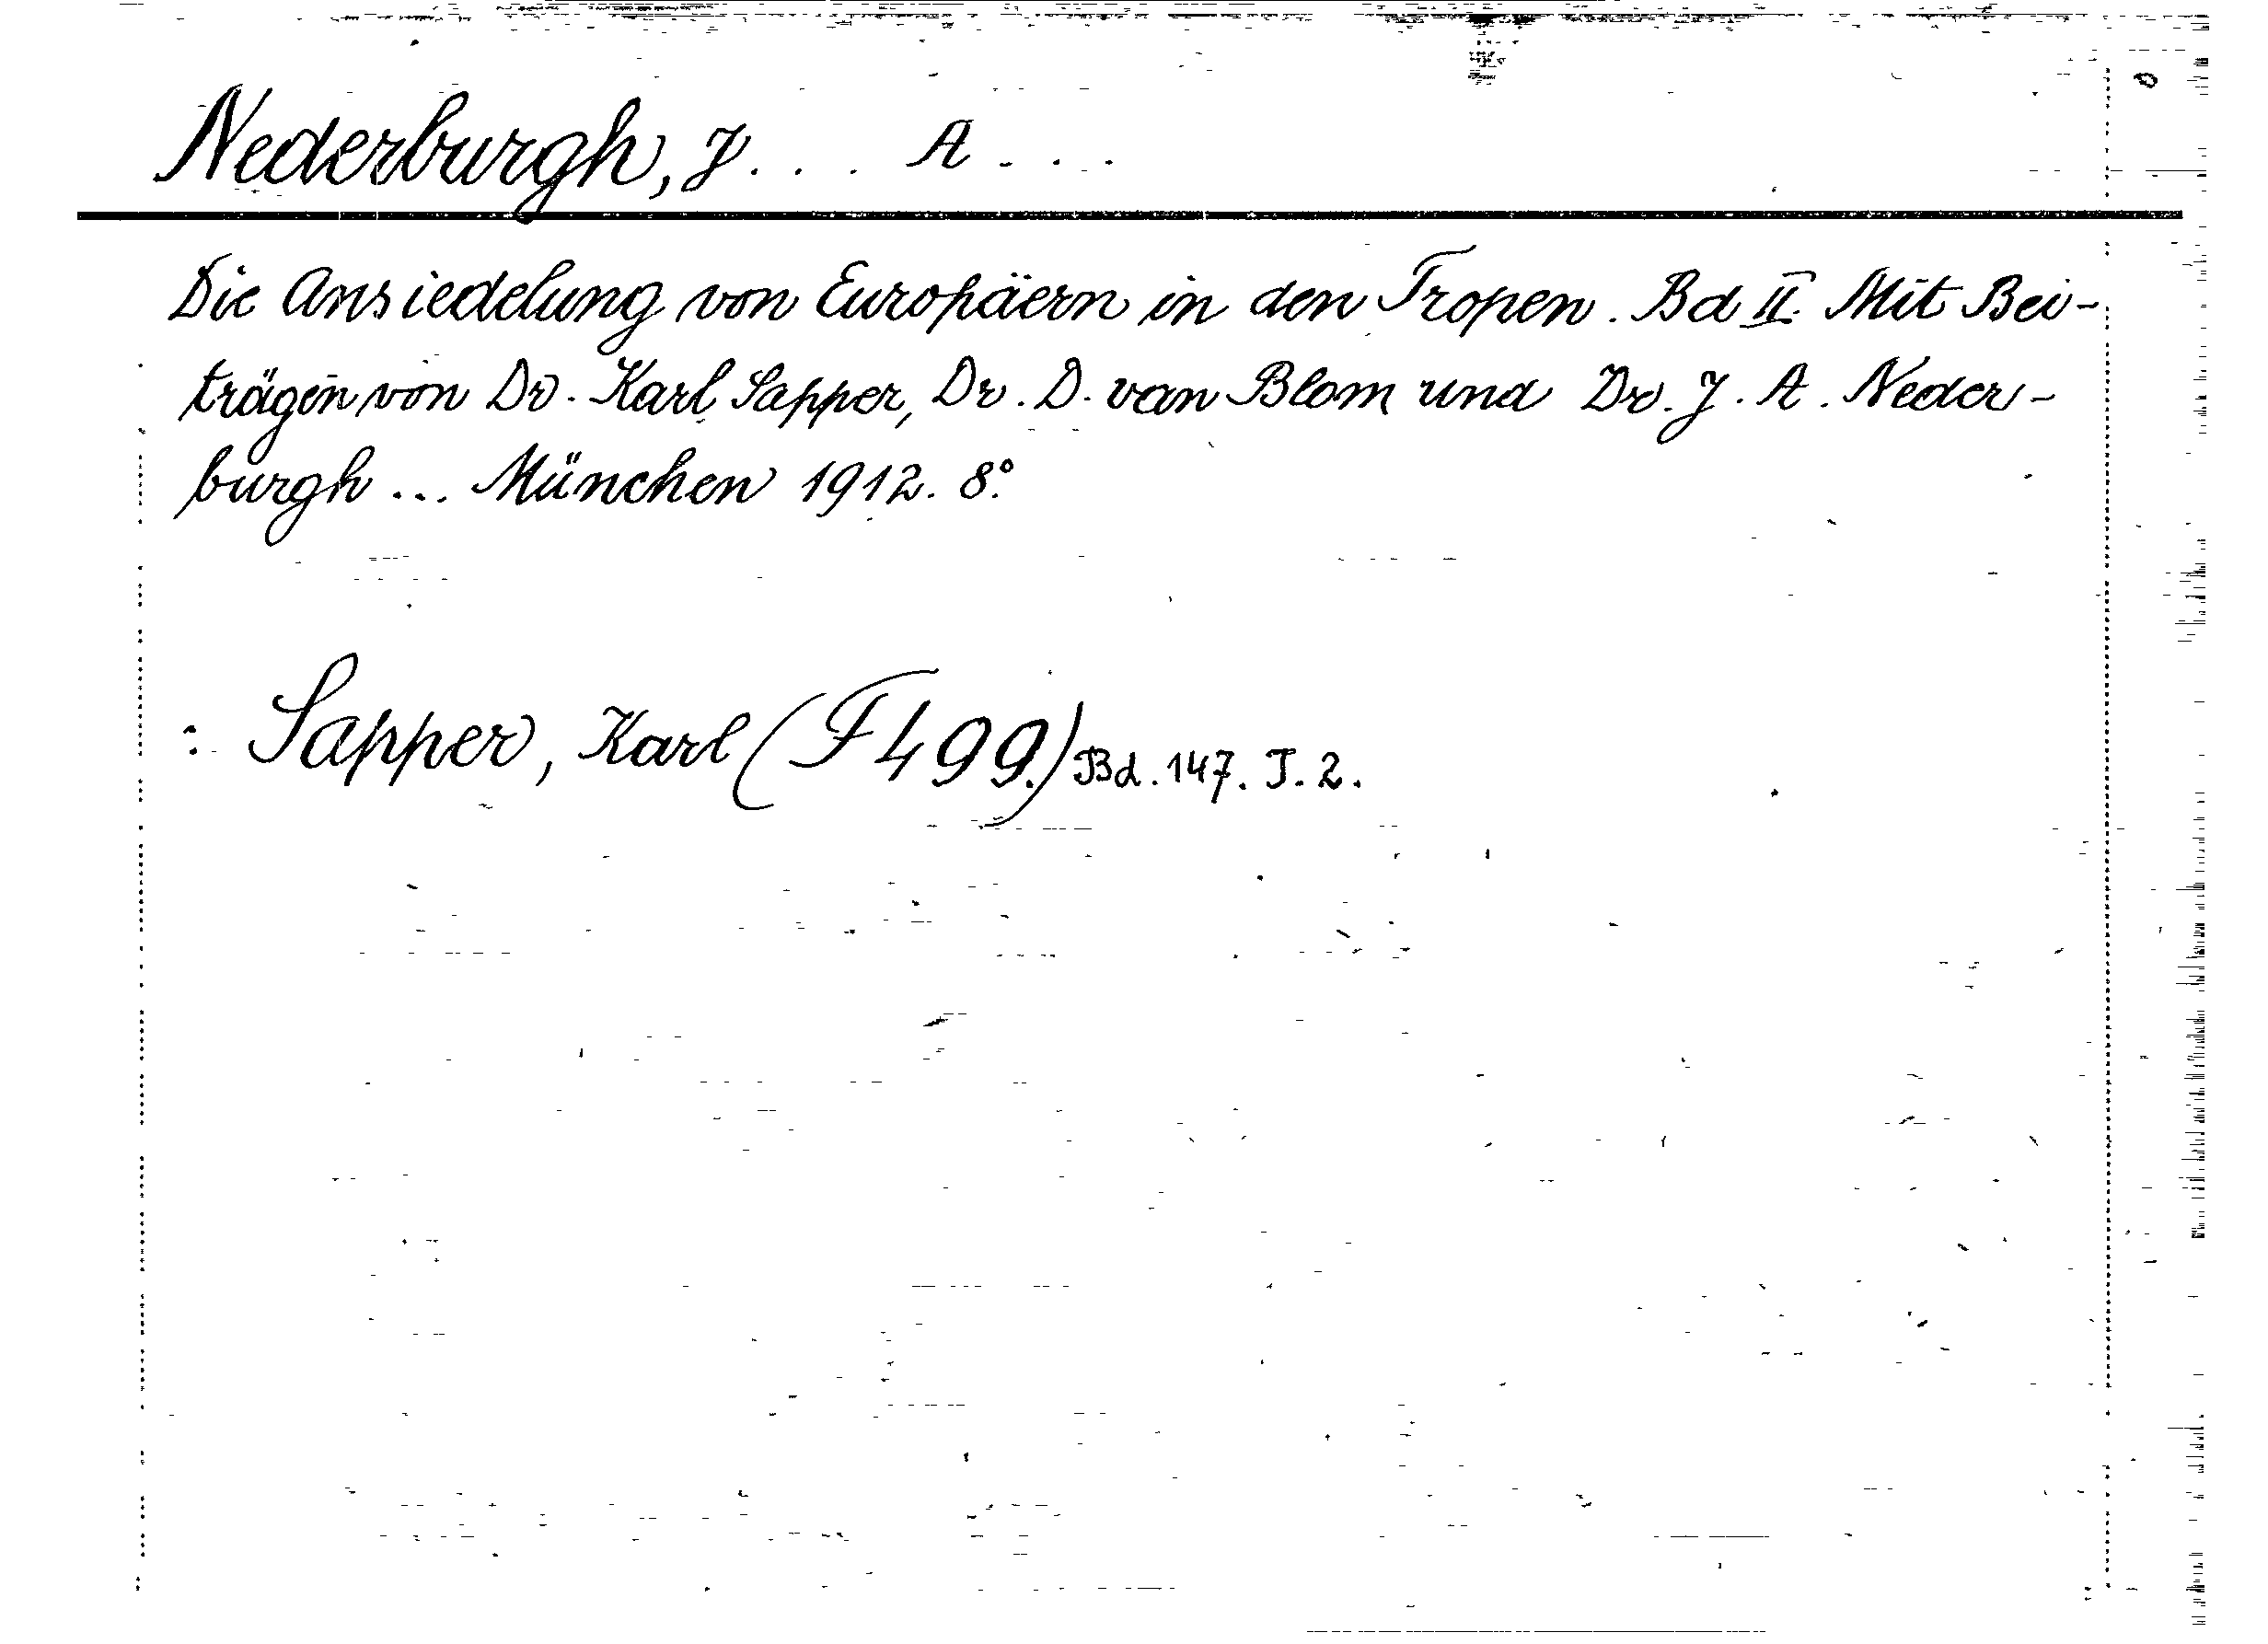 Nederburgh, J... A...
Die Ansiedelung von Europäern in den Tropen. Bd II. Mit Bei-
trägen von Dr. Karl Sapper, Dr. D. van Blom und Dr. J. A. Neder-
burgh ... München 1912. 8°.
: Sapper, Karl (F 499.) Bd. 147. T. 2.